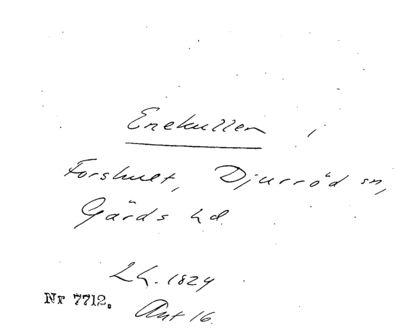 Enekullen,
Forshult, Djurröd sn,
Gärds hd.
Lh. 1824
Nr 7712.
Akt 16.